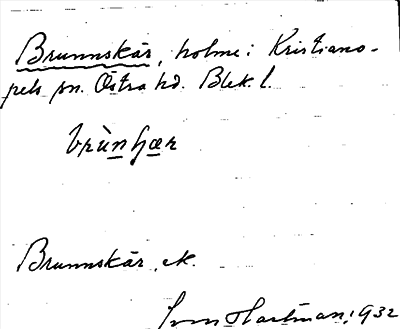 Brunnskär, holme i Kristiano-
pels sn. Östra hd. Blek. l.
brùnɧær
Brunnskär, ek.
Sven Hartman 1932